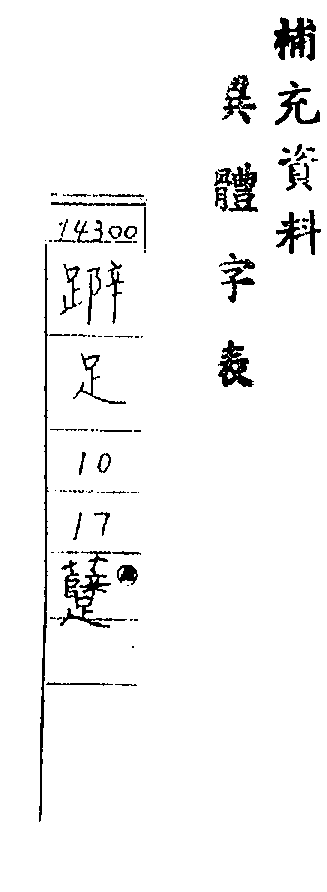 補充資料
異體字表
14300
足
10
17